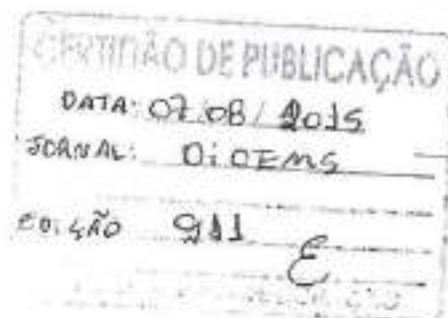 CERTIDÃO DE PUBLICAÇÃO
DATA: 07.08/2015
JORNAL: DiOEMS
EDIÇÃO 911